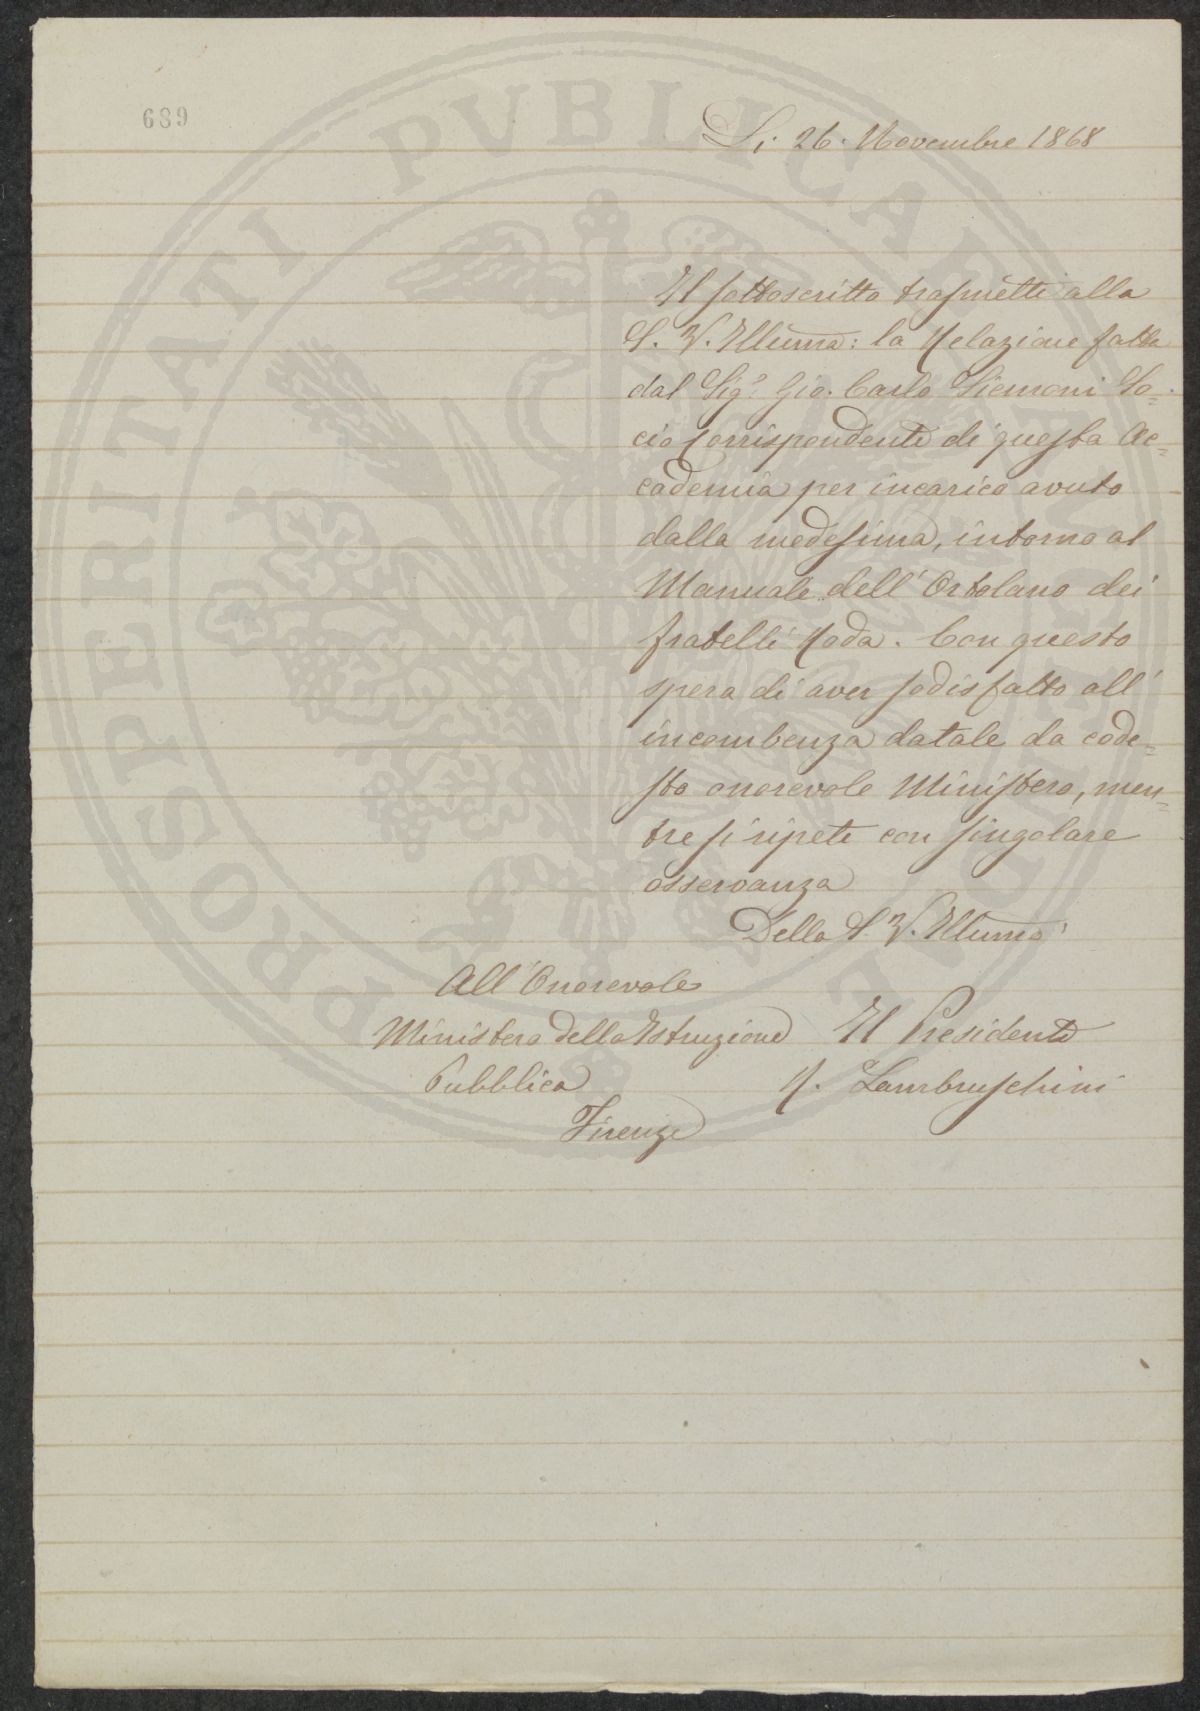 689
Li 26. Novembre 1868
Il sottoscritto trasmette alla
S. V. Illuma: la Relazione fatta
dal Sigr. Gio. Carlo Siemoni So=
cio Corrispondente di questa Ac=
cademia per incarico avuto
dalla medesima, intorno al
Manuale dell'Ortolano dei
fratelli Roda. Con questo
spera di aver sodisfatto all'
incombenza datale da code=
sto onorevole Ministero, men=
tre si ripete con singolare
osservanza
Della S. V. Illuma
All'Onorevole
Ministero della Istruzione
Pubblica
Firenze
Il Presidente
R. Lambruschini
PROSPERITATI PVBLICAE AVGENDAE